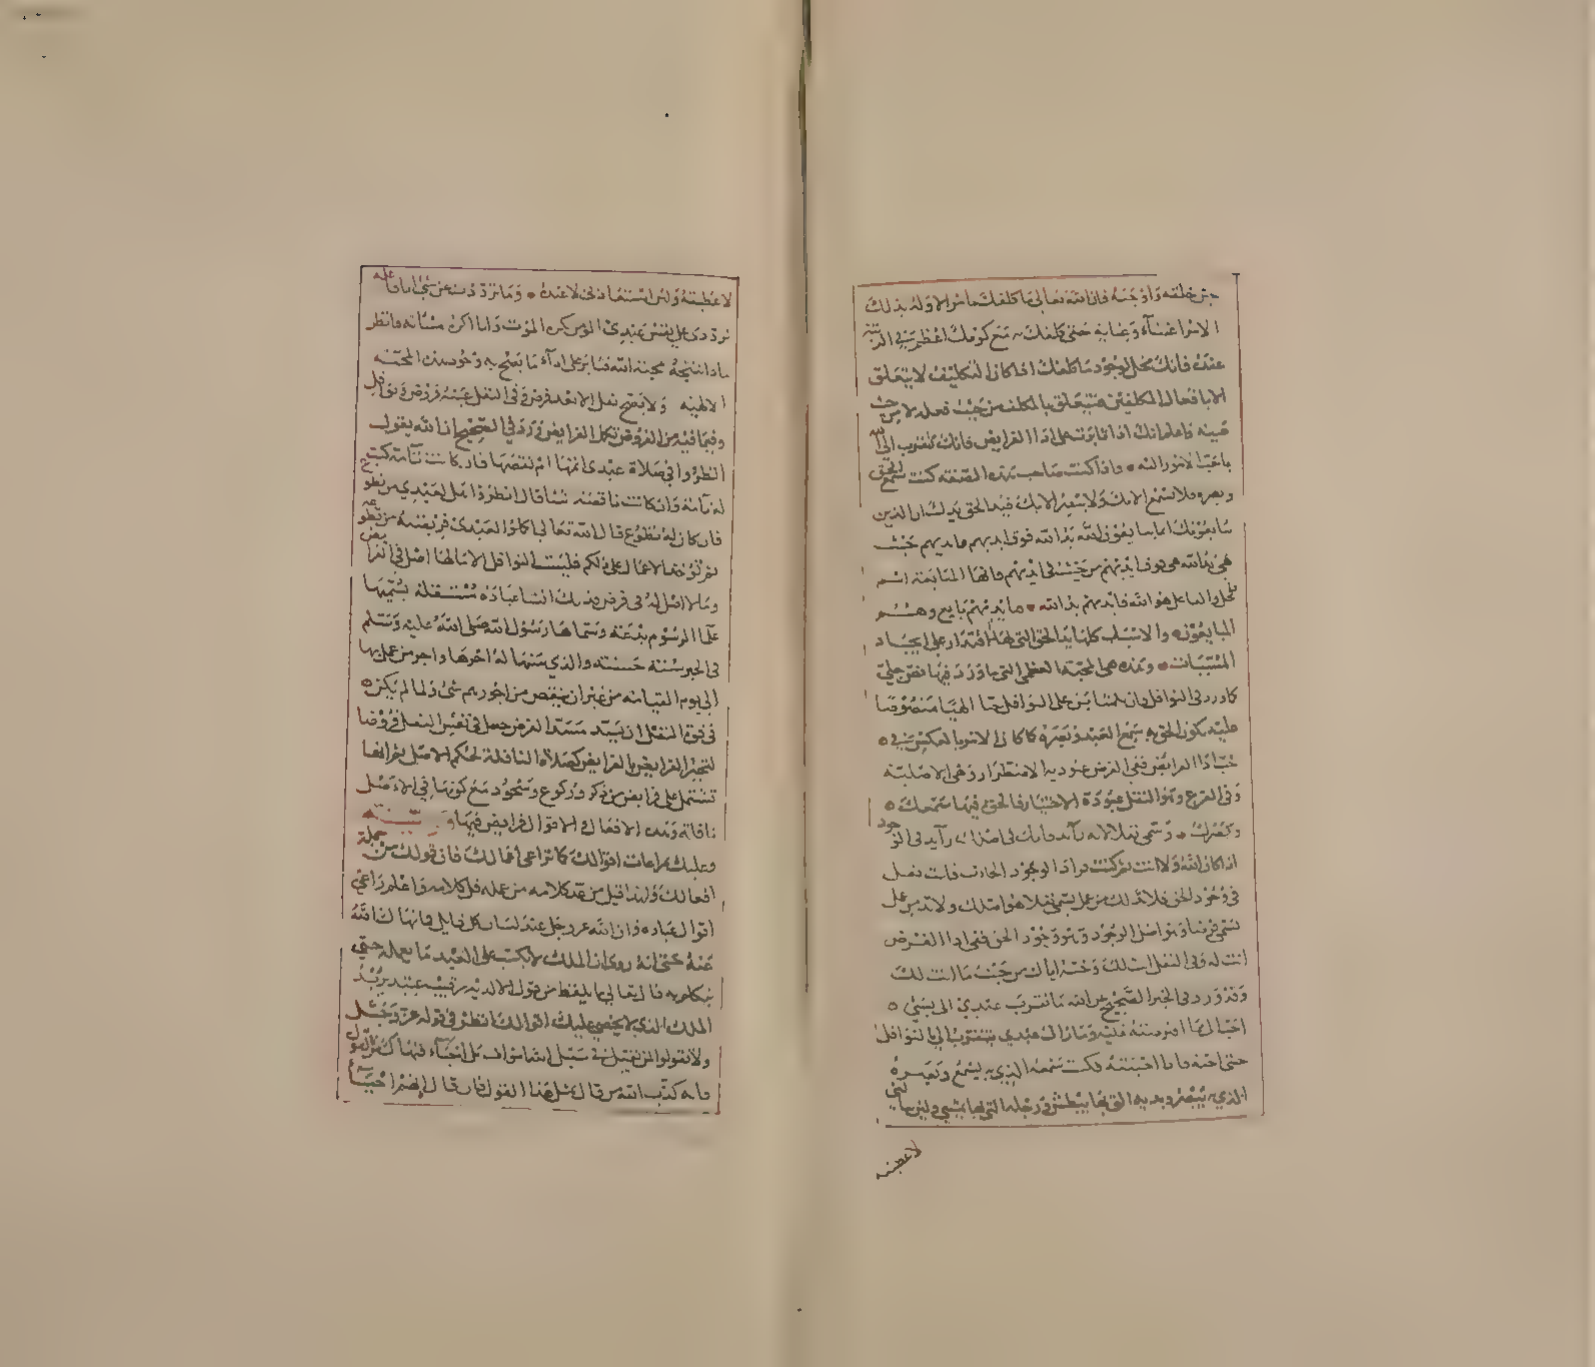 حين خلقه وأوجده فان الله تعالى ما كلفك ما امر الا وله بذلك
الامر اعتناء وعناية حتى كلفك به مع كونك اعظم في الرتبة
عنده فانك محل لوجود ما كلفك اذا كان التكليف لا يتعلق
الا بافعال المكلفين فيتعلق بالمكلف من حيث فعله لا من حيث
عينه فاعلم انك اذا ثابرت على اداء الفرايض فانك تتقرب الى الله
باحب الامور اليه واذا كنت صاحب هذه الصفة كنت سمع الحق
وبصره فلا يسمع الا بك ولا يبصر الا بك فيد الحق يدك ان الذين
يبايعونك انما يبايعون الله يد الله فوق ايديهم وايديهم من حيث
هي يد الله هي فوق ايديهم من حيث هي ايديهم فانها المبايعة اسم
فاعل والفاعل هو الله فايديهم يد الله فبايديهم بايع وهم
المبايعون والاسباب كلها يد الحق التي لها الاقتدار على ايجاد
المسببات وهذه هي المحبة العظمى التي ما ورد فيها نص جلي
كما ورد في النوافل فان للمثابرين على النوافل حبا الهيا منصوصا
عليه يكون الحق به سمع العبد وبصره كما كان الامر بالعكس في
حب اداء الفرايض ففي الفرض عبودية الاضطرار وهي الاصلية
وفي الفرع وهو النفل عبودة الاختيار فالحق فيها سمعك
وبصرك وسمي نفلا لانه زائد فانك في اصلك زايد في الوجود
اذ كان الله ولا انت ثم كنت فزاد الوجود الحادث فانت نفل
في وجود الحق فلا بد لك من عمل يسمى نفلا هو اصلك ولا بد من عمل
يسمى فرضا وهو اصل الوجود وهو وجود الحق ففي اداء الفرض
انت له وفي النفل انت لك وحبه اياك من حيث ما انت لك
وقد ورد في الخبر الصحيح عن الله ما تقرب عبدي الي بشيء
احب الي مما افترضته عليه وما زال عبدي يتقرب الي بالنوافل
حتى احبه فاذا احببته فكنت سمعه الذي به يسمع وبصره
الذي به يبصر ويديه التي بها يبطش ورجله التي بها يمشي ولئن سالني
لاعطينه
لاعطيته ولئن استعاذني لاعيذه وما ترددت عن شيء انا فاعله
ترددي على نفس عبدي المؤمن يكره الموت وانا اكره مساته فانظر
ما ذا انتجته محبة الله فثابر على اداء ما يصح به وجود هذه المحبة
الالهية ولا يصح نفل الا بعد فرض وفي النفل عينه فروض ونوافل
وفيما فيه من الفروض تكمل الفرايض ورد في الصحيح ان الله يقول
انظروا في صلاة عبدي اتمها ام نقصها فان كانت تامة كتبت
له تامة وان كانت ناقصة شيئا قال انظروا هل لعبدي من تطوع
فان كان له تطوع قال الله تعالى اكملوا لعبدي فريضته من تطوعه
ثم تؤخذ الاعمال على ذلكم فليست النوافل الا ما لها اصل في الفرايض
وما لا اصل له في فرض فذلك انشاء عبادة مستقلة يسميها
علماء الرسوم بدعة وسماها رسول الله صلى الله عليه وسلم
في الخبر سنة حسنة والذي سنها له اجرها واجر من عمل بها
الى يوم القيامة من غير ان ينقص من اجورهم شيء ولما لم يكن
في قوة النفل ان يسد مسد الفرض جعل في نفس النفل فروضا
لتجبر الفرايض بالفرايض كصلاة النافلة لحكم الاصل ثم انها
تشتمل على فرايض من ذكر وركوع وسجود مع كونها في الاصل
نافلة وهذه الافعال والاقوال فرايض فيها وصية
وعليك بمراعات اقوالك كما تراعي اعمالك فان قولك من جملة
افعالك ولهذا قيل من عد كلامه من عمله قل كلامه واعلم ان الله راعى
اقوال عباده وان الله عز وجل عند لسان كل قايل فما نهاك الله
عنه حتى انه روي ان الملك لا يكتب على العبد ما يعمله حتى
يتكلم به قال تعالى ما يلفظ من قول الا لديه رقيب عتيد يريد
الملك الذي يحصي عليك اقوالك انظر في قوله عز وجل
ولا تقولوا لمن يقتل في سبيل الله اموات بل احياء فنهاك عن القول
فانه كذب الله من قال مثل هذا القول فان قال انهم احياء